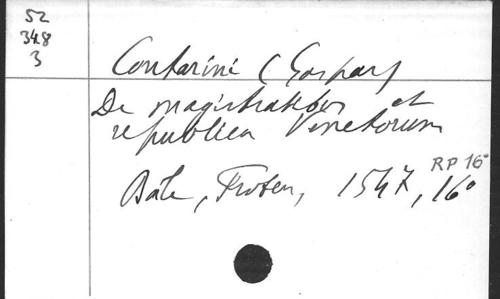 52
348
3
Contarini (Gaspar)
De magistratibus et
republica Venetorum
Bâle, Froben, 1547, 16°
RP 16°